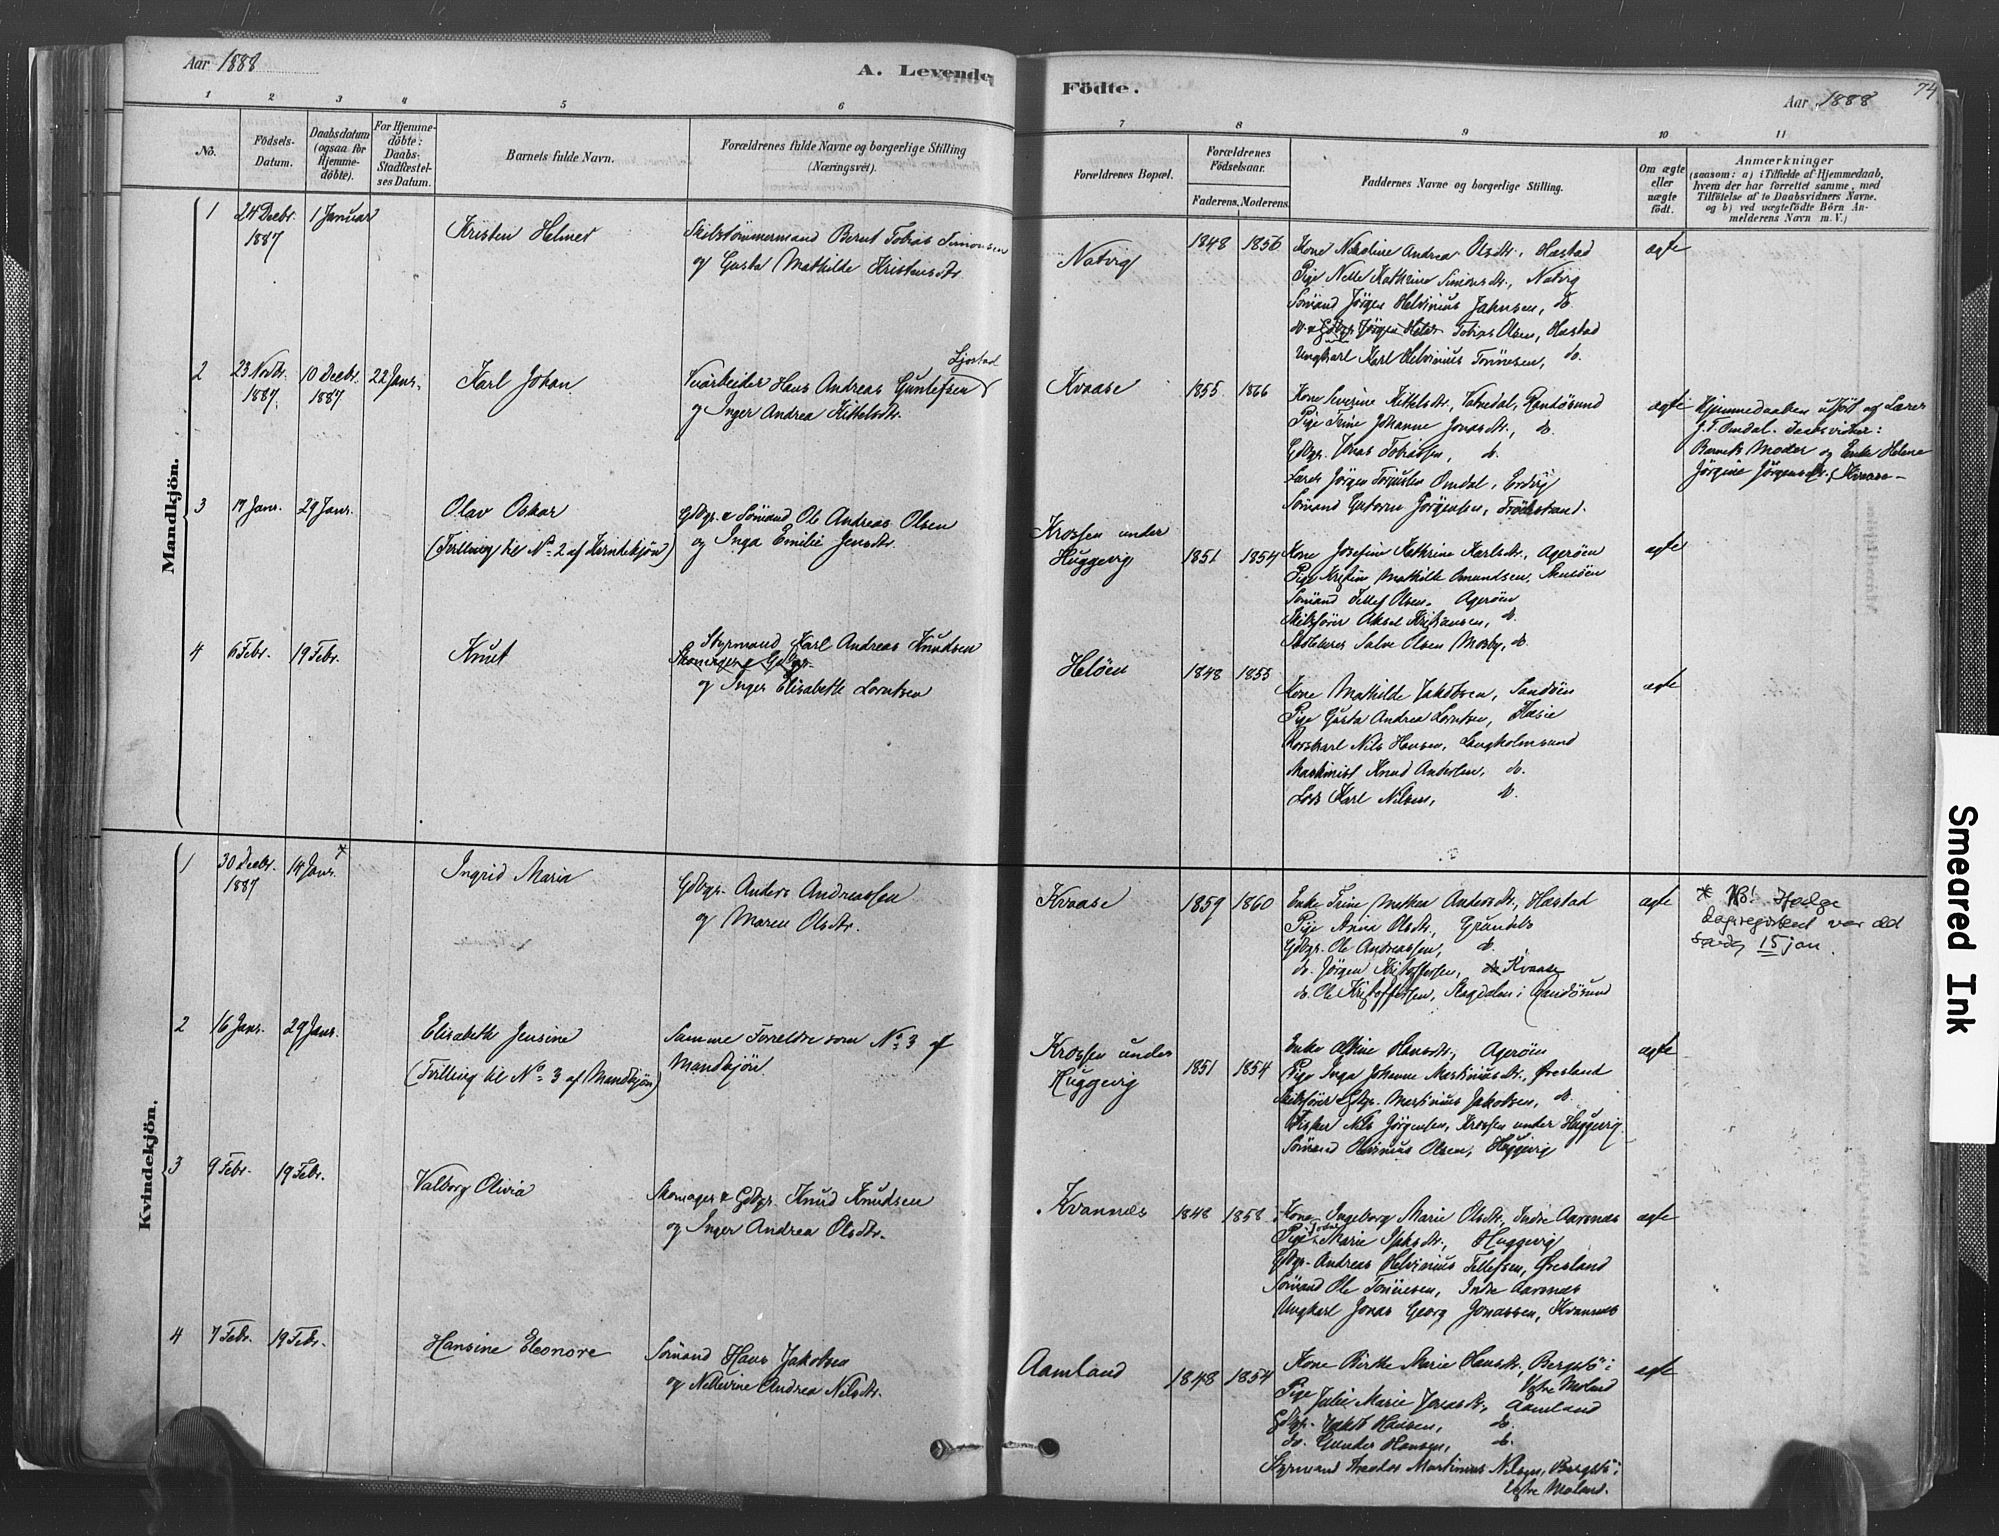 Aar 1888
A. Levende
Födte.
Aar 1888
74
1
2
3
4
5
6
7
8
9
10
11
No.
Födsels-
Datum.
Daabsdatum
(ogsaa for
Hjemme-
döbte).
For Hjemme-
döbte:
Daabs-
Stadfæstel-
ses Datum.
Barnets fulde Navn.
Forældrenes fulde Navne og borgerlige Stilling
(Næringsvei).
Forældrenes Bopæl.
Forældrenes
Födselsaar.
Faderens. Moderens.
Faddernes Navne og borgerlige Stilling.
Om ægte
eller
uægte
födt.
Anmærkninger
(saasom: a) i Tilfælde af Hjemmedaab,
hvem der har forrettet samme, med
Tilföielse af to Daabsvidners Navne.
og b) ved uægtefödte Börn An-
melderens Navn m. V.)
Mandkjön.
1
24 Decbr.
1887
1 Januar
Kristen Helmer
Skibstömmermand Bernt Tobias Simonsen
og Gusta Mathilde Kristensdtr.
Natvig
1848
1856
Kone Nikoline Andrea Olsdtr., Hæstad
Pige Nelle Kathrine Simonsdtr., Natvig
Sömand Jörgen Helvinius Jahnsen, do.
Tobias Olsen, Hæstad
Ungkarl Karl Helvinius Tönnesen, do.
ægte
2
23 Novbr.
1887.
10 Decbr.
1887
22 Janr.
Karl Johan
Ljostad
Veiarbeider Hans Andreas Guntefsen
og Inger Andrea Kittelsdtr.
Kvaase
1855
1866
Kone Severine Kittelsdtr., Randösund
Pige Trine Johanne Jonasdtr., do.
Gdbgr. Jonas Tobiassen, do.
Lærer Jörgen Omdal,
Sömand Jörgensen,
ægte
Hjemmedaaben udfört og Lærer
J. T. Omdal. Daabsvidner:
Barnets Moder og Enke Helene
Jörgine Jörgensdtr., Kvaase
3
17 Janr.
29 Janr.
Olav Oskar
(Tvilling til No. 2 af Kvindekjön)
Gdbgr. & Sömand Ole Andreas Olsen
og Inga Emilie Jensdtr.
Krossen under
Huggevig
1851
1854
Kone Josefine Kathrine Karlsdtr., Agerøen
Pige Kristine Mathilde Amundsen,
Sömand Tellef Olsen, Agerøen
Skibsförer Aksel Kristiansen, do.
Salve Olsen Mosby, do.
ægte
4
6 Febr.
19 Febr.
Knut
Styrmand Karl Andreas Knudsen
Skomager & Gdbgr.
og Inger Elisabeth Lorntsen
Heløen
1848
1855
Kone Mathilde Jakobsen, Sandøen
Pige Gusta Andrea Lorntsen,
Nils Hansen, Langholmsund
Maskinist Knud Andersen, do.
Lods Karl Nilsen, do.
ægte
Kvindekjön.
1
30 Decbr.
1887
14 Janr. *
Ingrid Maria
Gdbgr. Anders Andreassen
og Maren Olsdtr.
Kvaase
1859
1860
Enke Trine Mathea Andersdtr., Hæstad
Pige Anna Olsdtr.,
Gdbgr. Ole Andreassen, do.
do. Jörgen Kristoffersen, do Kvaase
do. Ole Kristoffersen, i Randösund
ægte
* NB! Ifølge
dagregisteret var det
15 jan.
2
16 Janr.
29 Janr.
Elisabeth Jensine
(Tvilling til No. 3 af Mandkjön)
Samme Foreldre som No. 3 af
Mandkjön.
Krossen under
Huggevig
1851
1854
Enke Hansdtr., Agerøen
Pige Inga Johanne Martiniusdtr., Øresland
Skibsförer & Gdbgr. Martinius Jakobsen, do.
Fisker Nils Jörgensen, Krossen under Huggevig.
Sömand Olsen, Huggevig
ægte
3
9 Febr.
19 Febr.
Valborg Olivia
Skomager & Gdbgr. Knud Knudsen
og Inger Andrea Olsdtr.
Kvannes
1848
1858
Kone Ingeborg Marie Olsdtr., Indre Aarsnæs
Pige Marie Huggevig
Gdbgr. Andreas Helvinius Tellefsen, Øresland
Sömand Ole Tönnesen, Indre Aarsnæs
Ungkarl Jonas Georg Jonassen, Kvannes
ægte
4
7 Febr.
19 Febr.
Hansine Eleonore
Sömand Hans Jakobsen
og Nellevine Andrea Nilsdtr.
Aamland
1848
1854
Kone Birthe Marie Hansdtr., Bergstö i
Vestre Moland
Pige Julie Marie Jensdtr., Aamland
Gdbgr. Jakob Hansen, do.
do. Gunder Hansen, do.
Styrmand Martinius Nilsen, Bergstö i
Vestre Moland.
ægte
Smeared Ink